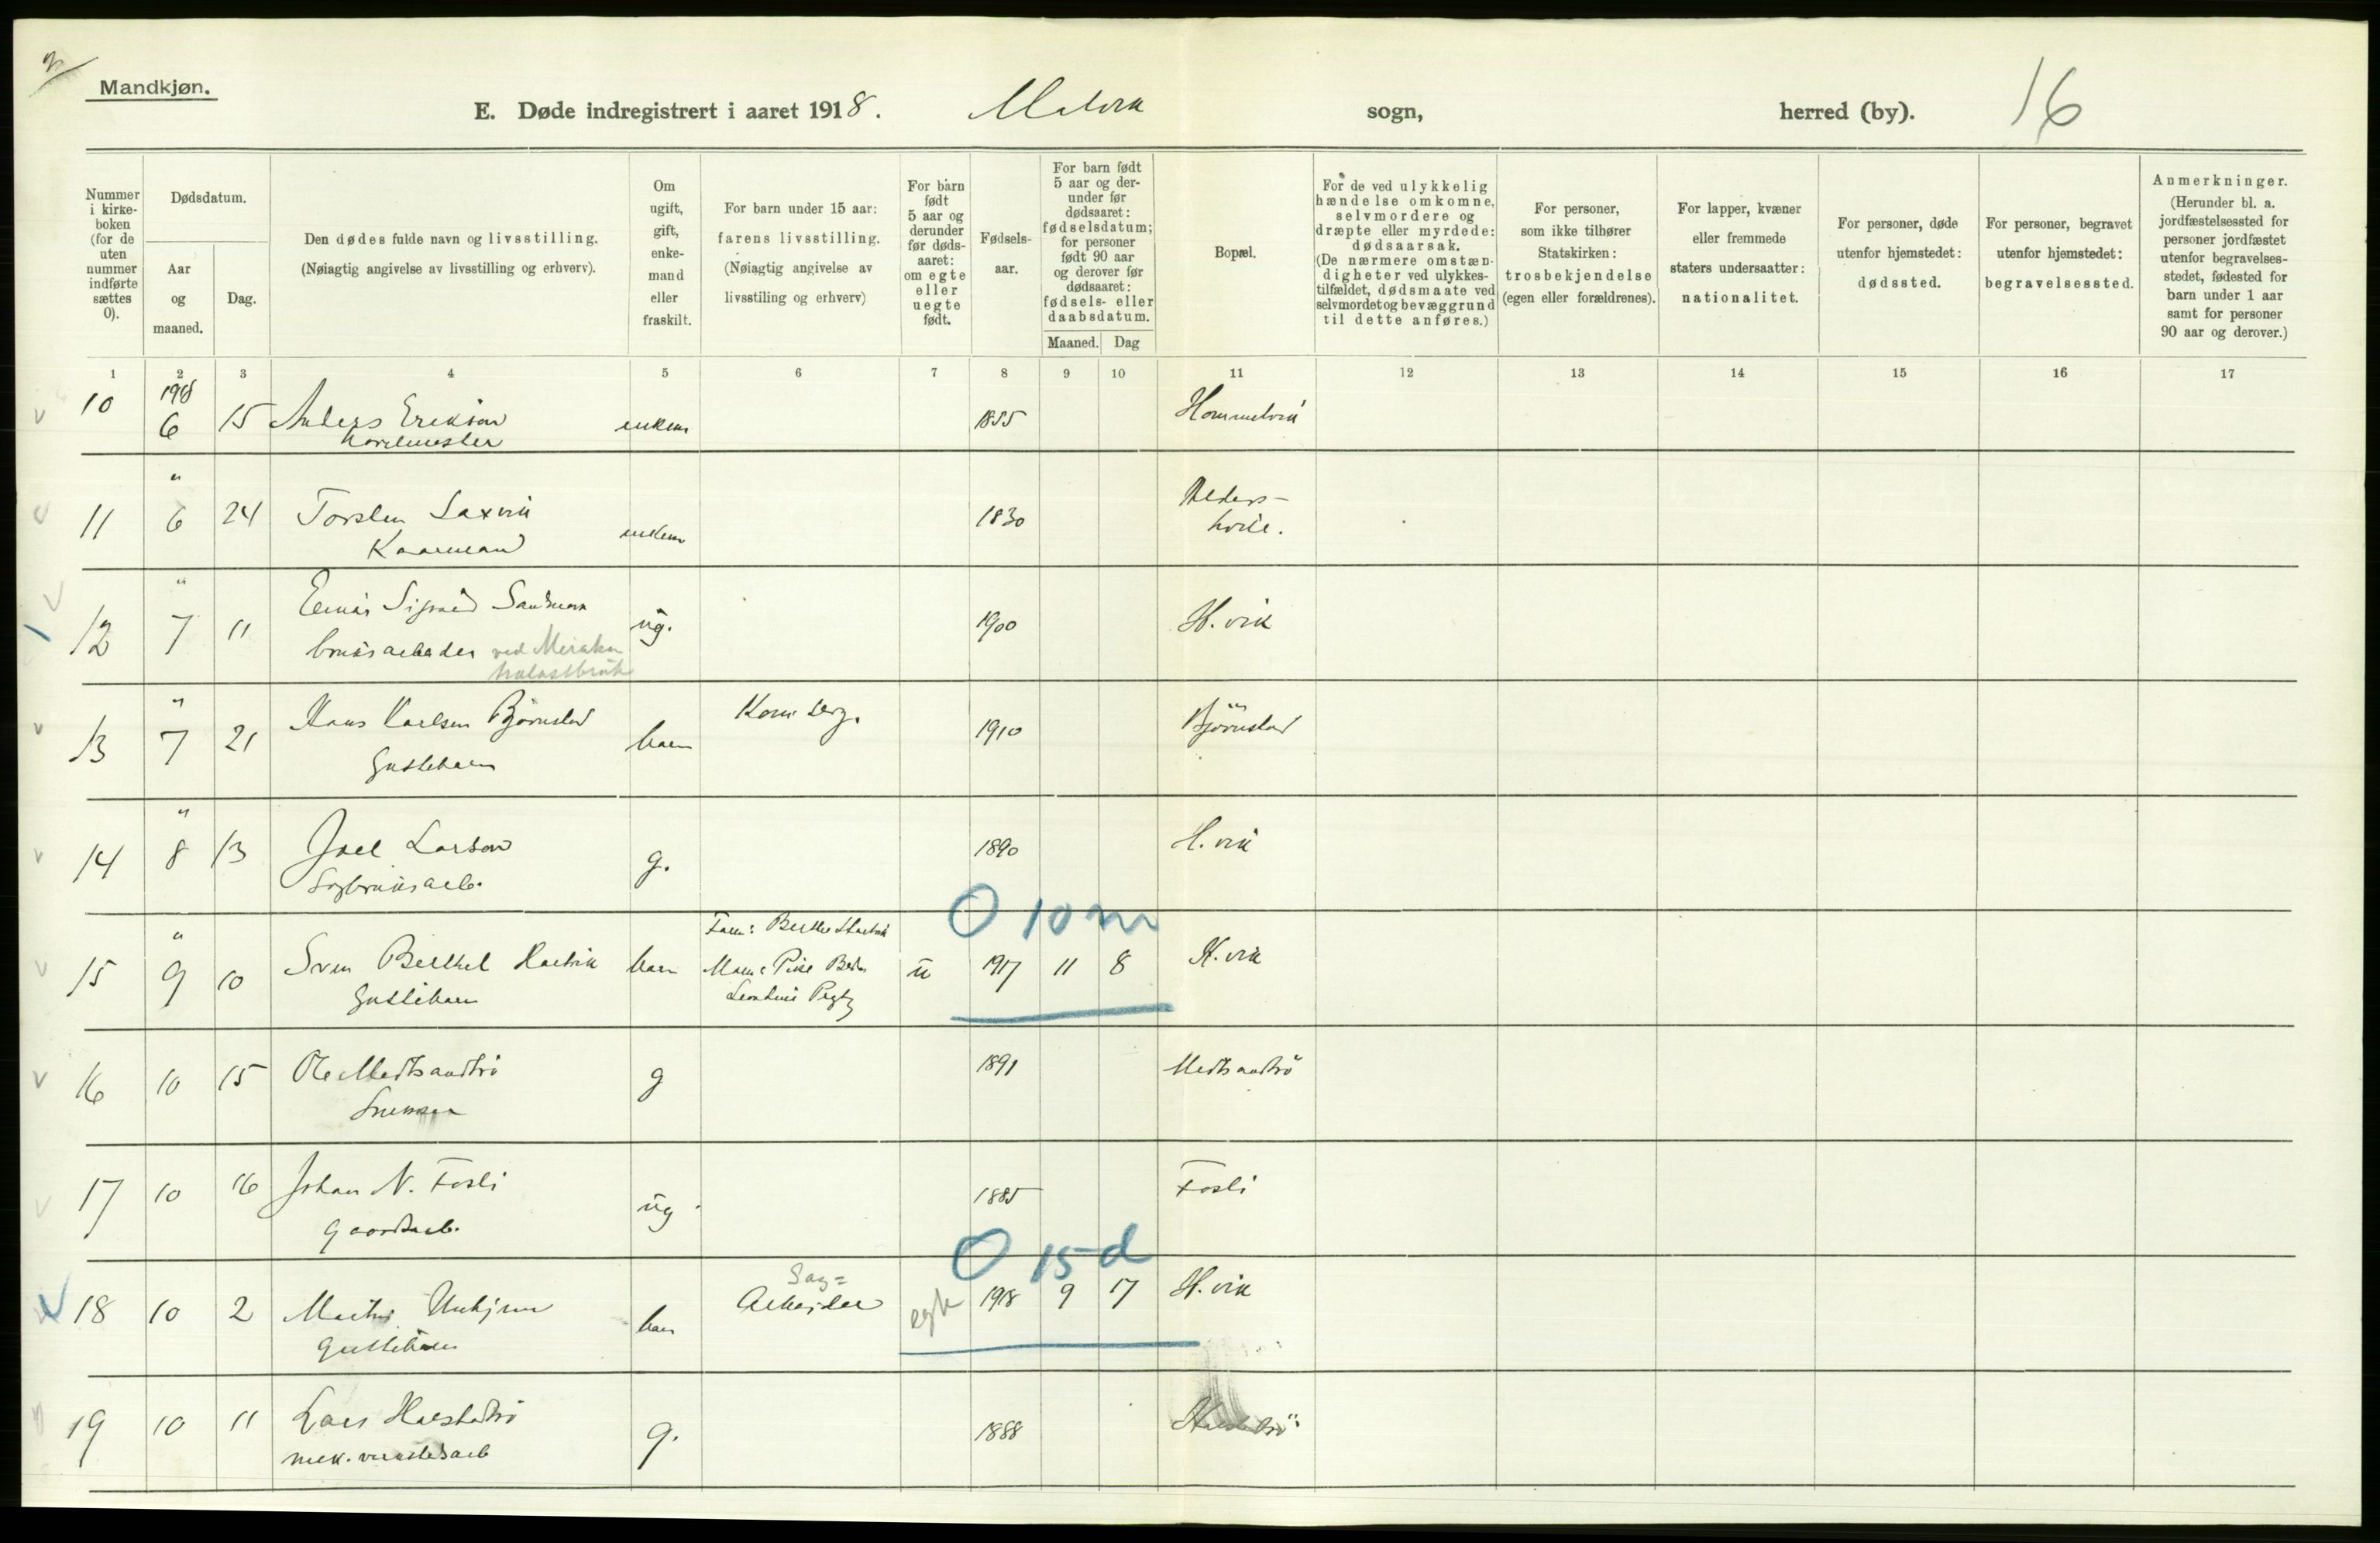 Mandkjøn.
E. Døde indregistrert i aaret 1918. Malvik sogn, herred (by). 16
Nummer i kirke- boken (for de uten nummer indførte sættes 0).
Dødsdatum.
Aar og maaned.
Dag.
Den dødes fulde navn og livsstilling.
(Nøiagtig angivelse av livsstilling og erhverv).
Om ugift, gift, enke- mand eller fraskilt.
For barn under 15 aar:
farens livsstilling.
(Nøiagtig angivelse av
livsstiling og erhverv)
For barn født 5 aar og derunder før døds- aaret: om egte eller uegte født.
Fødsels- aar.
For barn født 5 aar og der- under før dødsaaret: fødselsdatum; for personer født 90 aar og derover før dødsaaret: fødsels- eller daabsdatum.
Maaned. Dag
Bopæl.
For de ved ulykkelig hændelse omkomne, selvmordere og dræpte eller myrdede: dødsaarsak. (De nærmere omstæn- digheter ved ulykkes- tilfældet, dødsmaate ved selvmordet og bevæggrund til dette anføres.)
For personer, som ikke tilhører Statskirken: trosbekjendelse (egen eller forældrenes).
For lapper, kvæner eller fremmede staters undersaatter: nationalitet.
For personer, døde utenfor hjemstedet: dødssted.
For personer, begravet utenfor hjemstedet: begravelsessted.
Anmerkninger. (Herunder bl. a. jordfæstelsessted for personer jordfæstet utenfor begravelses- stedet, fødested for barn under 1 aar samt for personer 90 aar og derover.)
1 2 3 4 5 6 7 8 9 10 11 12 13 14 15 16 17
10 1918 6 15 Anders Erikson enkem 1855 Hommelvik
11 " 6 24 Torsten Saxvik enkem 1830 Alders-
Kaarmand hvile.
12 " 7 11 Einar Sigurd Sandmon ug. 1900 H.vik
bruksarbeider ved Meraker
trælastbruk
13 " 7 21 Hans Karlsen Björnstad barn Korn. serg. 1910 Björnstad
Guttebarn
14 " 8 13 Joel Larson g. 1890 H.vik
Sagbruksarb.
0 10 m
15 " 9 10 Sven Berthel barn u 1917 11 8 H.vik
Guttebarn
16 10 15 Ole Medtsandtrö g 1891 Medtsandtrö
17 10 16 Johan N. Fosli ug. 1885 Fosli
gaardsarb.
0 15 d
Sag=
18 10 2 barn Arbeider egte 1918 9 17 H.vik
Guttebarn
19 10 11 Lars Halstadtrö g. 1888 Halstadtrö
mek. verkstedsarb